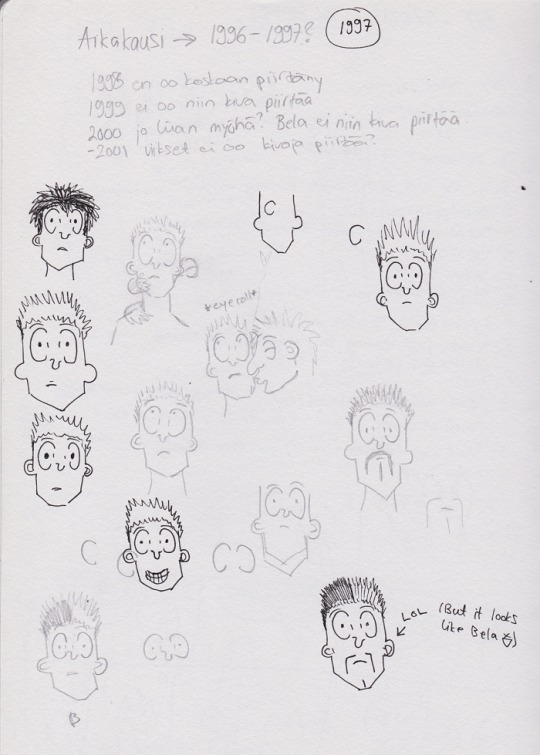 Aikakausi → 1996-1997? 1997
1998 en oo koskaan piirtäny
1999 ei oo niin kiva piirtää
2000 jo liian myöhä? Bela ei niin kiva piirtää
-2001 viikset ei oo kivoja piirtää?
C
C
*eyeroll*
C
LOL (But it looks
like Bela
B